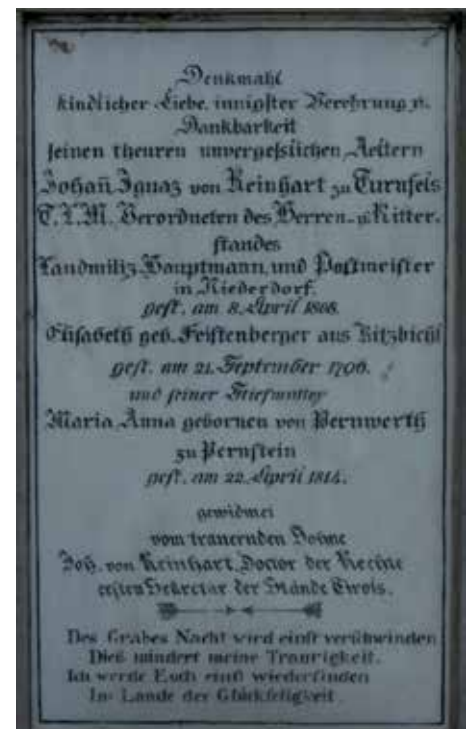 Denkmahl
kindlicher Liebe, innigster Verehrung u.
Dankbarkeit
seinen theuren unvergesslichen Aeltern
Johañ Ignaz von Reinhart zu Turnfels
T. L. M. Verordneten des Herren- u. Ritter-
standes
Landmiliz-Hauptmann, und Postmeister
in Niederdorf.
gest. am 8. April 1808.
Elisabeth geb. Feistenberger aus Kitzbichl
gest. am 21. September 1796.
und seiner Stiefmutter
Maria Anna gebornen von Pernwerth
zu Pernstein
gest. am 22. April 1814.
gewidmet
vom trauernden Sohne
Joh. von Reinhart Doctor der Rechte
ersten Sekretar der Stände Tirols.
Des Grabes Nacht wird einst verschwinden
Dieß mindert meine Traurigkeit.
Ich werde Euch einst wiederfinden
Im Lande der Glückseligkeit